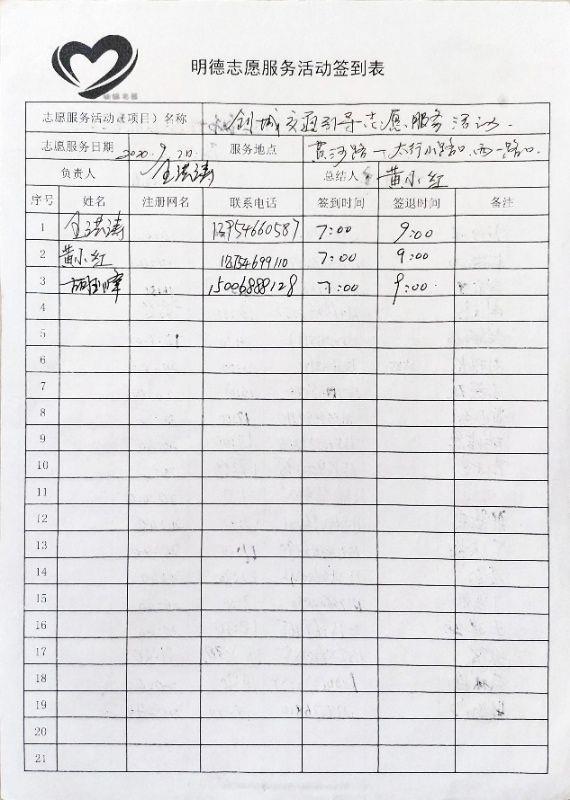 明德志愿服务活动签到表
志愿服务活动(项目)名称 创城交通引导志愿服务活动.
志愿服务日期 2020.9.20. 服务地点 黄河路一太行小路口.西一路口.
负责人 总结人 黄小红
序号 姓名 注册网名 联系电话 签到时间 签退时间 备注
1 7:00 9:00
2 黄小红 18754699110 7:00 9:00
3 15006888128 7:00 9:00
4
5
6
7
8
9
10
11
12
13
14
15
16
17
18
19
20
21